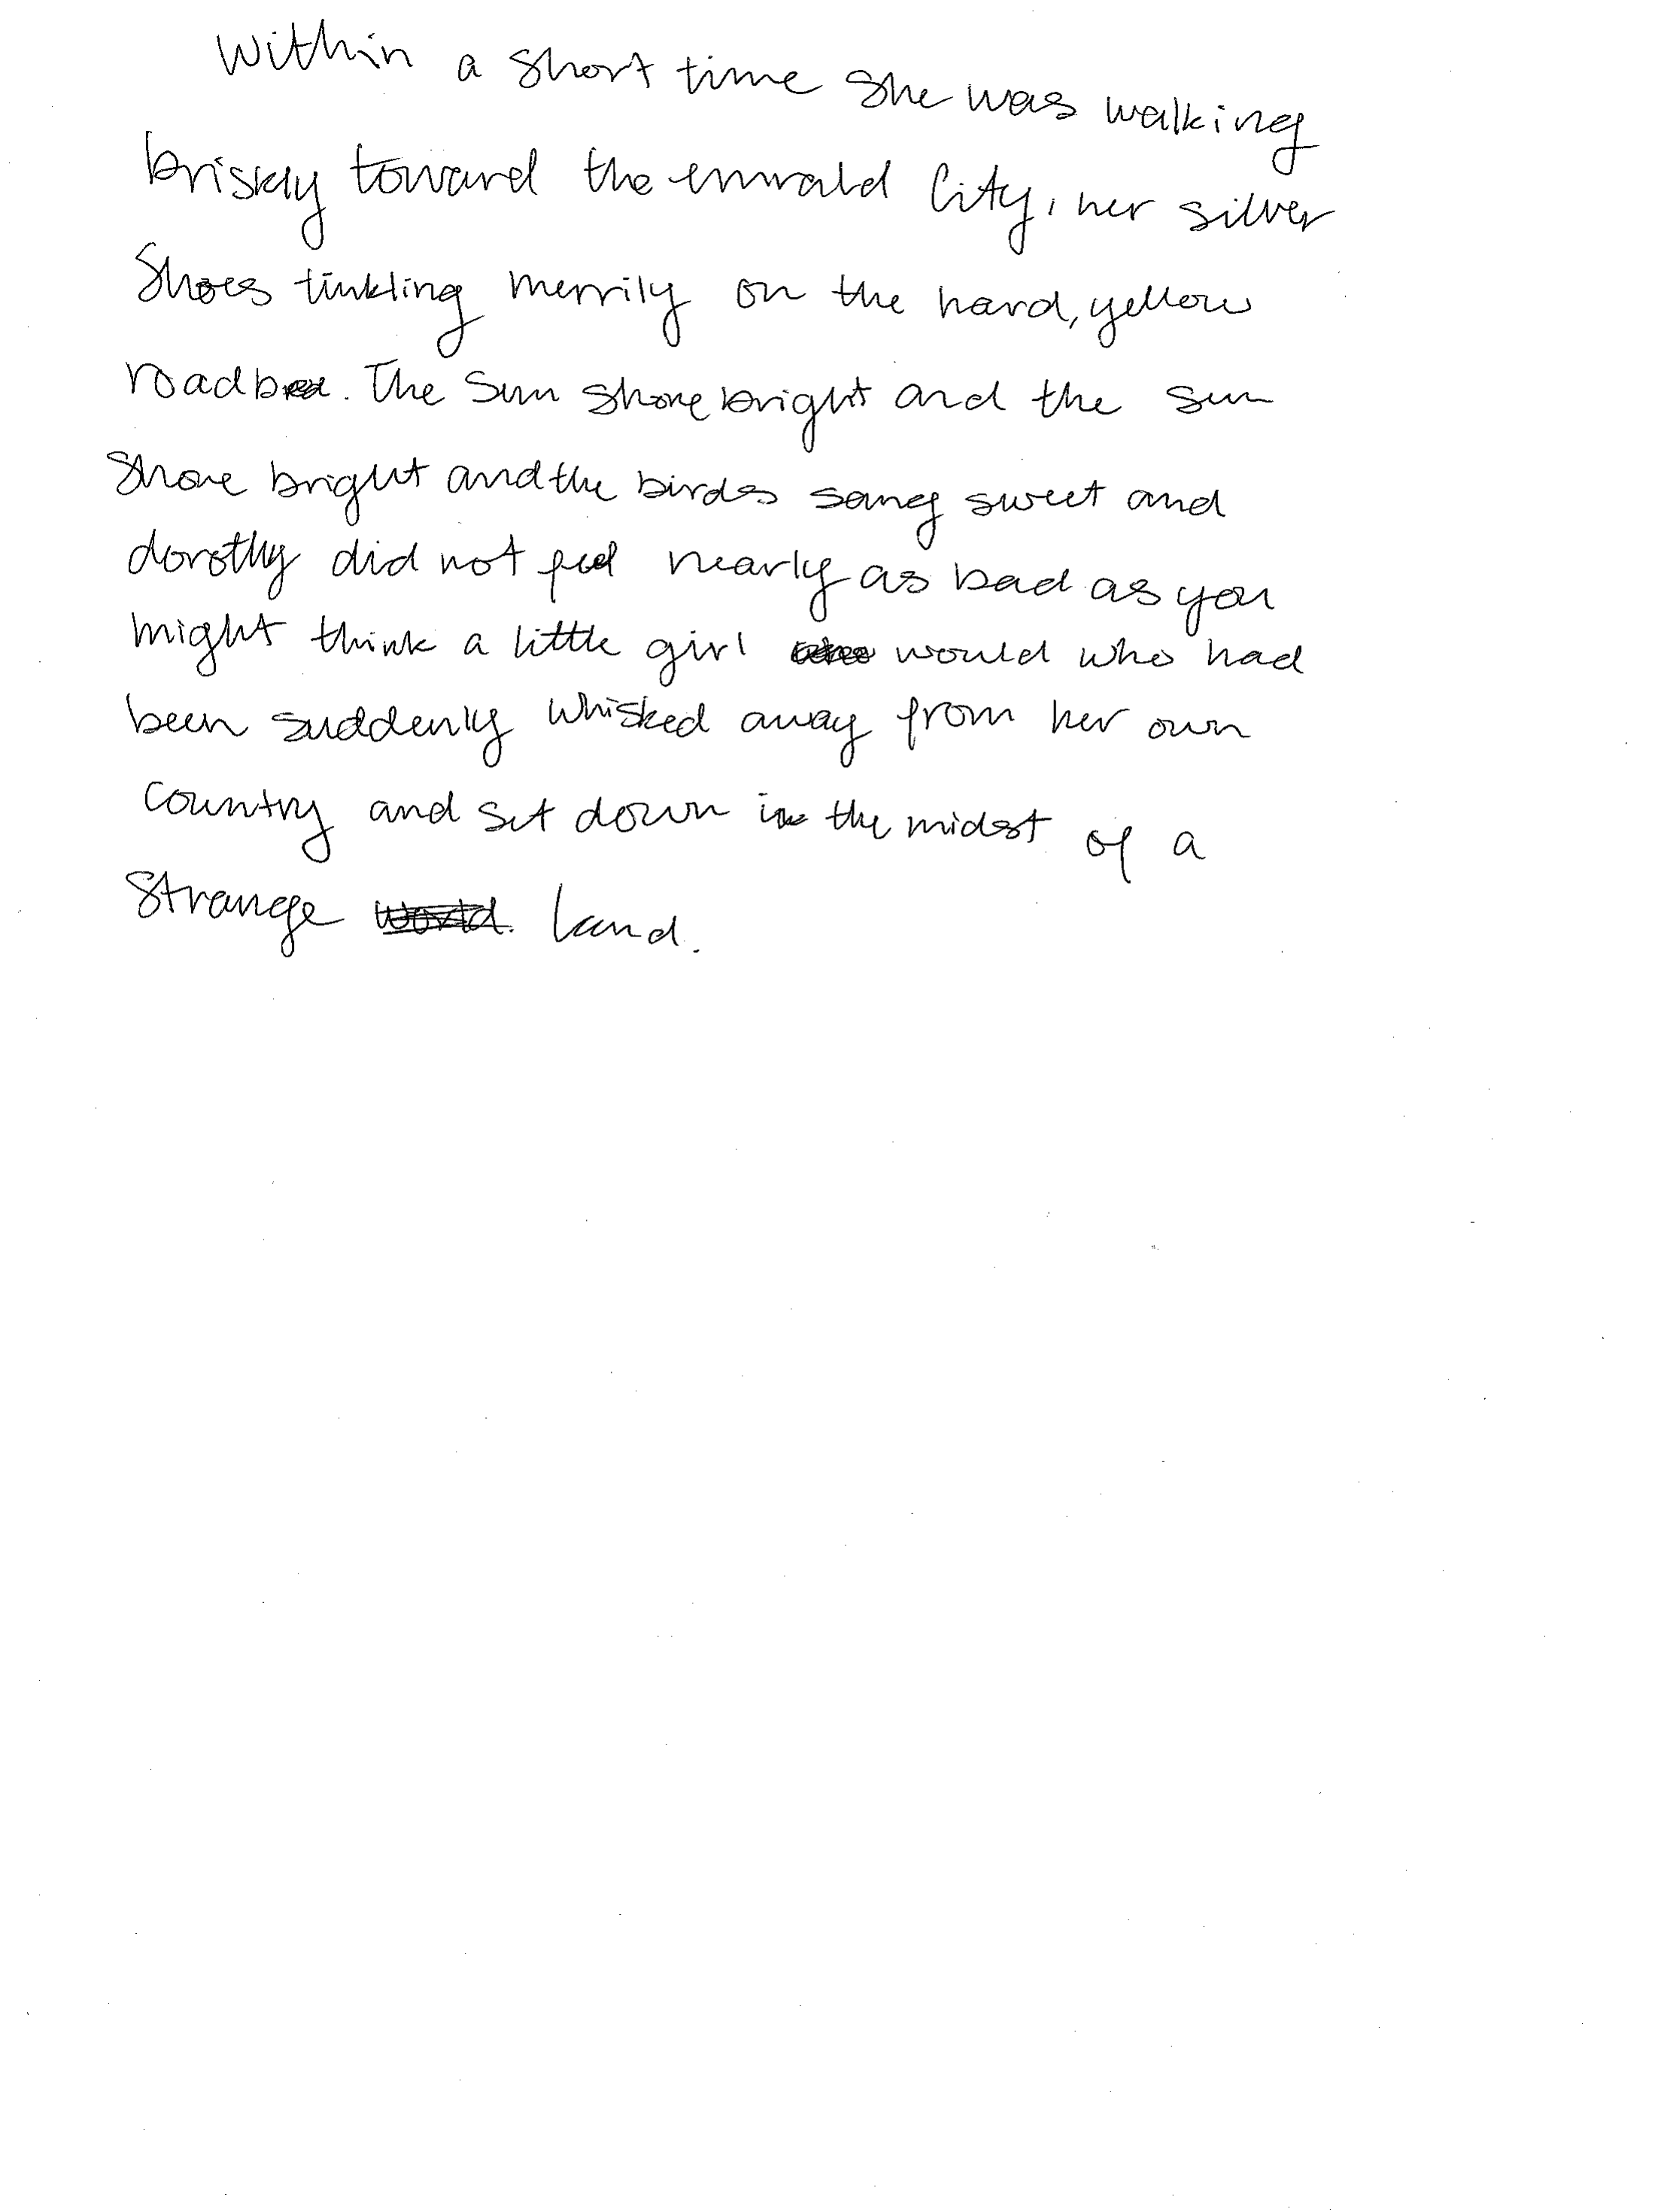 Within a short time she was walking
briskly toward the emrald City, her silver
Shoes tinkling merrily on the hard, yellow
roadbed. The Sun shone bright and the sun
Shone bright and the birds sang sweet and
dorothy did not feel nearly as bad as you
might think a little girl would who had
been suddenly whisked away from her own
Country and set down in the midst of a
Strange world. land.